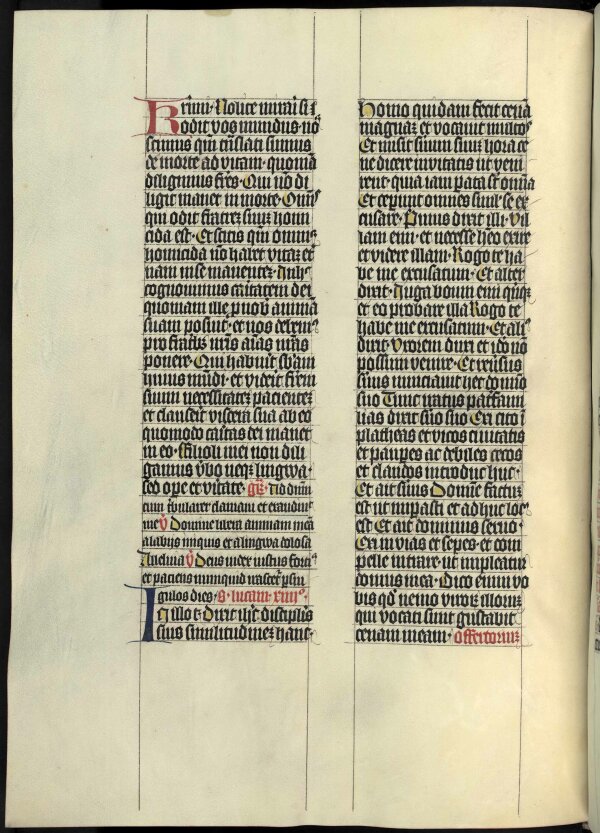 Krimi. Nolite mirari si
odit vos mundus. nos
scimus qm̄ trāslati sumus
de morte ad vitam. quoniā
diligimus frēs. Qui nō di
ligit manet in morte. Omīs
qui odit fratrē suū homi
cida est. Et scitis qm̄ omnis
homicida nō habet vitā et
nam in se manentē. In hoc
cognouimus caritatem dei
quoniam ille pro nob animā
suam posuit. et nos debemꝰ
pro fratribꝫ nr̄is aīas nr̄as
ponere. Qui habuit sbām
huius mūdi. et viderit frēm
suum necessitatē pacientē
et clauserit viscera sua ab eo
quomodo caritas dei manet
in eo. Filioli mei non dili
gamus vbo neqꝫ lingwa.
sed ope et vitate. gr̄. Ad dnm̄
cum tribularer clamaui et exaudiuit
me v̄ Domine libera animam meā
a labijs iniquis et a lingwa dolosa
Alleluia v̄ Deus iudex iustus fortis
et paciens nunquid irascet̄ p sin
gulos dies. S. lucam. xiiij.
In illo t. Dixit ih̄c discipulis
suis similitudinē hanc.
Homo quidam fecit cenā
magnā et vocauit multos
Et misit suum suū hora ce
ne dicere inuitatis ut veni
rent. quia iam pata sūt omīa
Et ceperūt omnes simul se ex
cusare. Primus dixit illi. Vil
lam emi. et necesse h̄eo exire
et videre illam. Rogo te ha
be me excusatum. Et alter
dixit. Iuga boum emi qnqꝫ
et eo probare illa Rogo te
habe me excusatum. Et alius
dixit. Vxorem duxi et ido nō
possum venire. Et reūsus
suus nunciauit hec domīo
suo Tunc iratus paterfami
lias dixit suo suo Exi cito ī
plateas et vicos ciuitatis
et paupes ac debiles cecos
et claudos introduc huc.
Et ait suus Domīe factū
est ut impasti et adhuc locꝰ
est Et ait dominus seruo.
Exi in vias et sepes. et com
pelle intrare. ut impleatur
domus mea. Dico enim vo
bis qd̄ nemo virorū illorū
qui vocati sunt gustabit
cenam meam. offertoriū